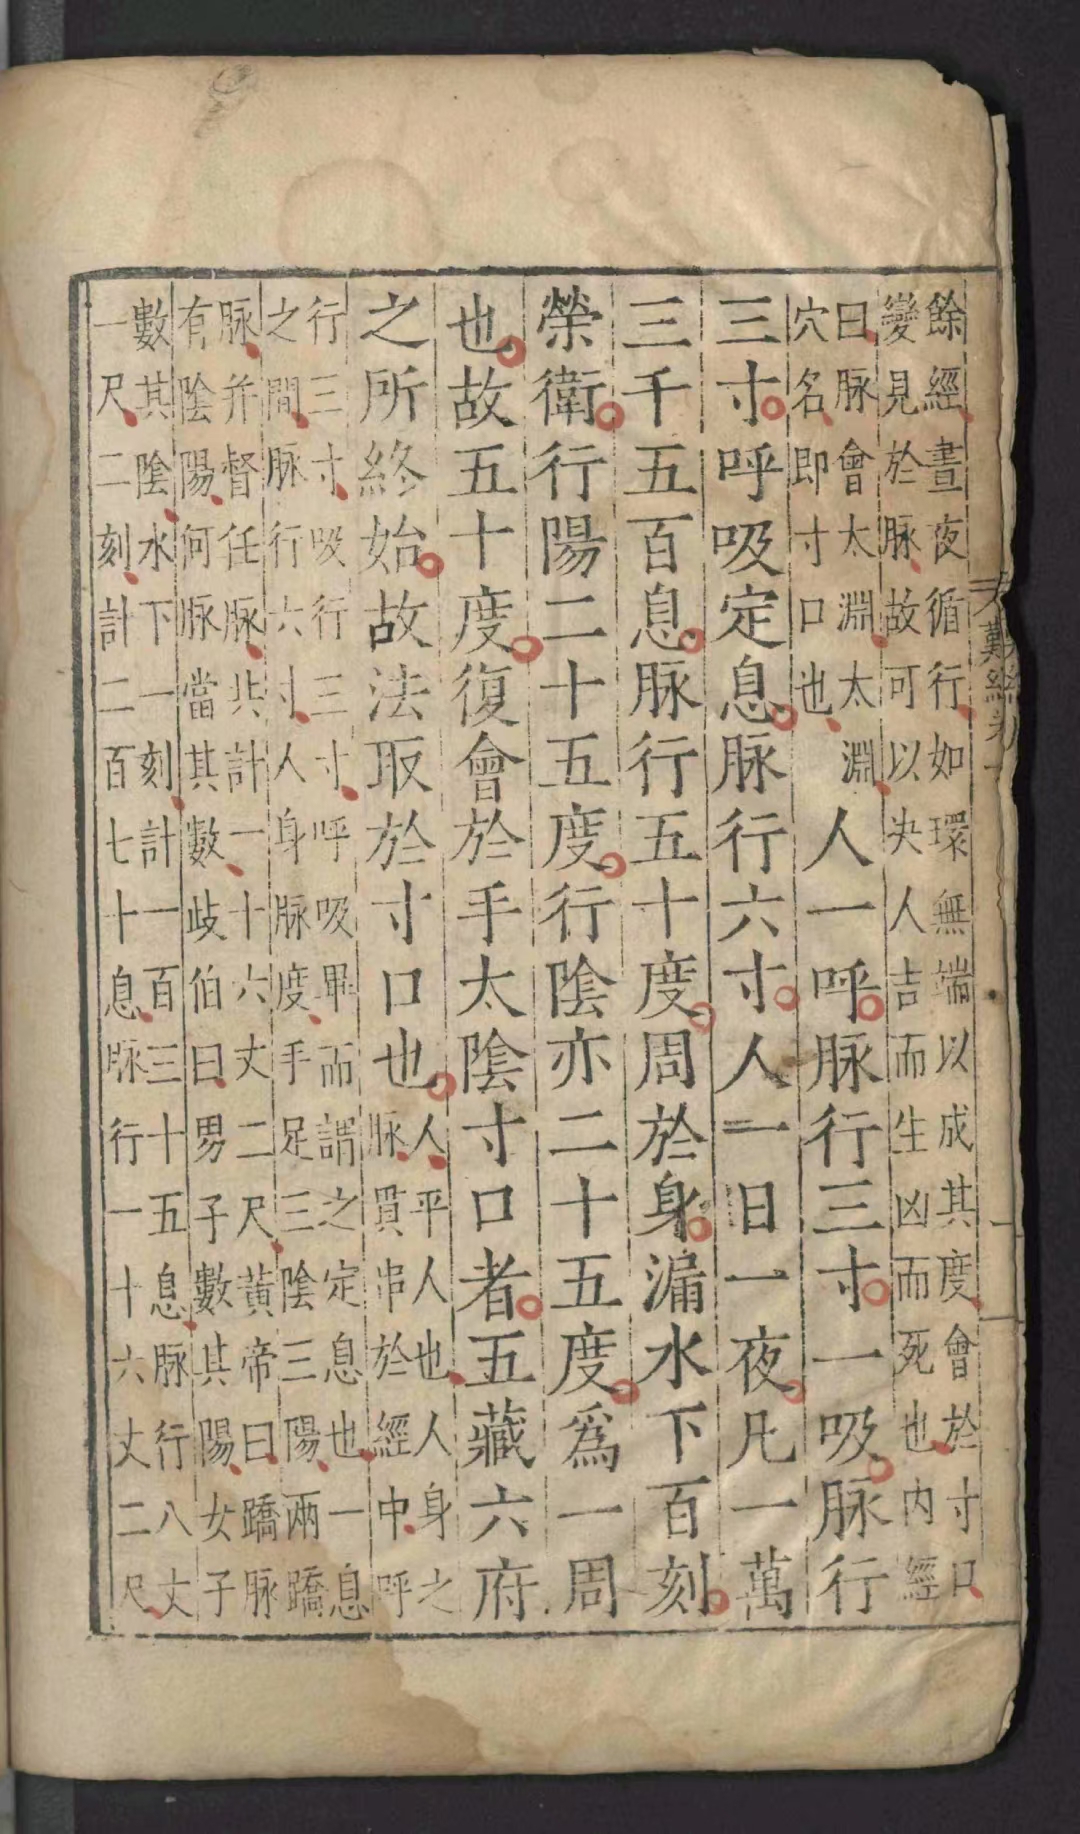 餘經晝夜循行如環無端以成其度會於寸口
變見於脉故可以决人吉而生凶而死也內經
曰脉會太淵太淵
穴名即寸口也
人一呼脉行三寸一吸脉行
三寸呼吸定息脉行六寸人一日一夜凡一萬
三千五百息脉行五十度周於身漏水下百刻
榮衛行陽二十五度行陰亦二十五度爲一周
也故五十度復會於手太陰寸口者五藏六府
之所終始故法取於寸口也
人平人也人身之
脉貫串於經中呼
行三寸吸行三寸呼吸畢而謂之定息也一息
之間脉行六寸人身脉度手足三陰三陽兩蹻
脉并督任脉共計一十六丈二尺黃帝曰蹻脉
有陰陽何脉當其數歧伯曰男子數其陽女子
數其陰水下一刻計一百三十五息脉行八丈
一尺二刻計二百七十息脉行一十六丈二尺
難經卷